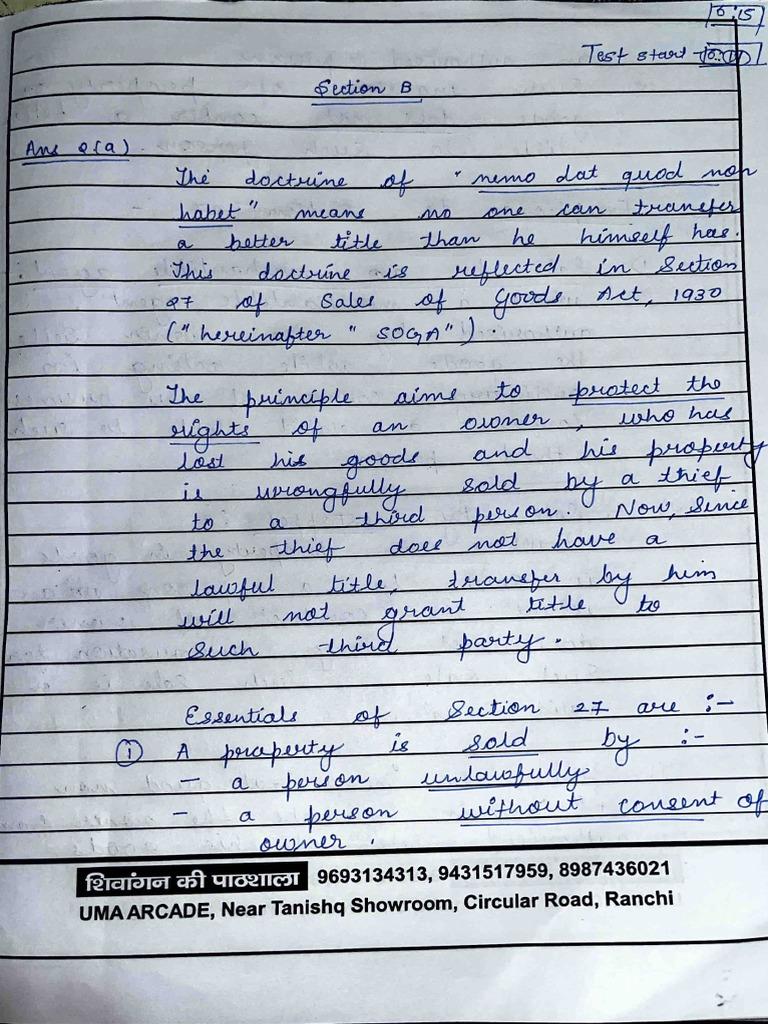 0:15
Test start -
Section B
Ans 2(a).
The doctrine of "nemo dat quod non
habet" means no one can transfer
a better title than he himself has.
This doctrine is reflected in Section
27 of Sales of Goods Act, 1930
("hereinafter "SOGA")
The principle aims to protect the
rights of an owner, who has
lost his goods and his property
is wrongfully sold by a thief
to a third person. Now, since
the thief does not have a
lawful title, transfer by him
will not grant title to
such third party.
Essentials of Section 27 are :-
(i) A property is sold by :-
- a person unlawfully
- a person without consent of
owner.
शिवांगन की पाठशाला 9693134313, 9431517959, 8987436021
UMA ARCADE, Near Tanishq Showroom, Circular Road, Ranchi